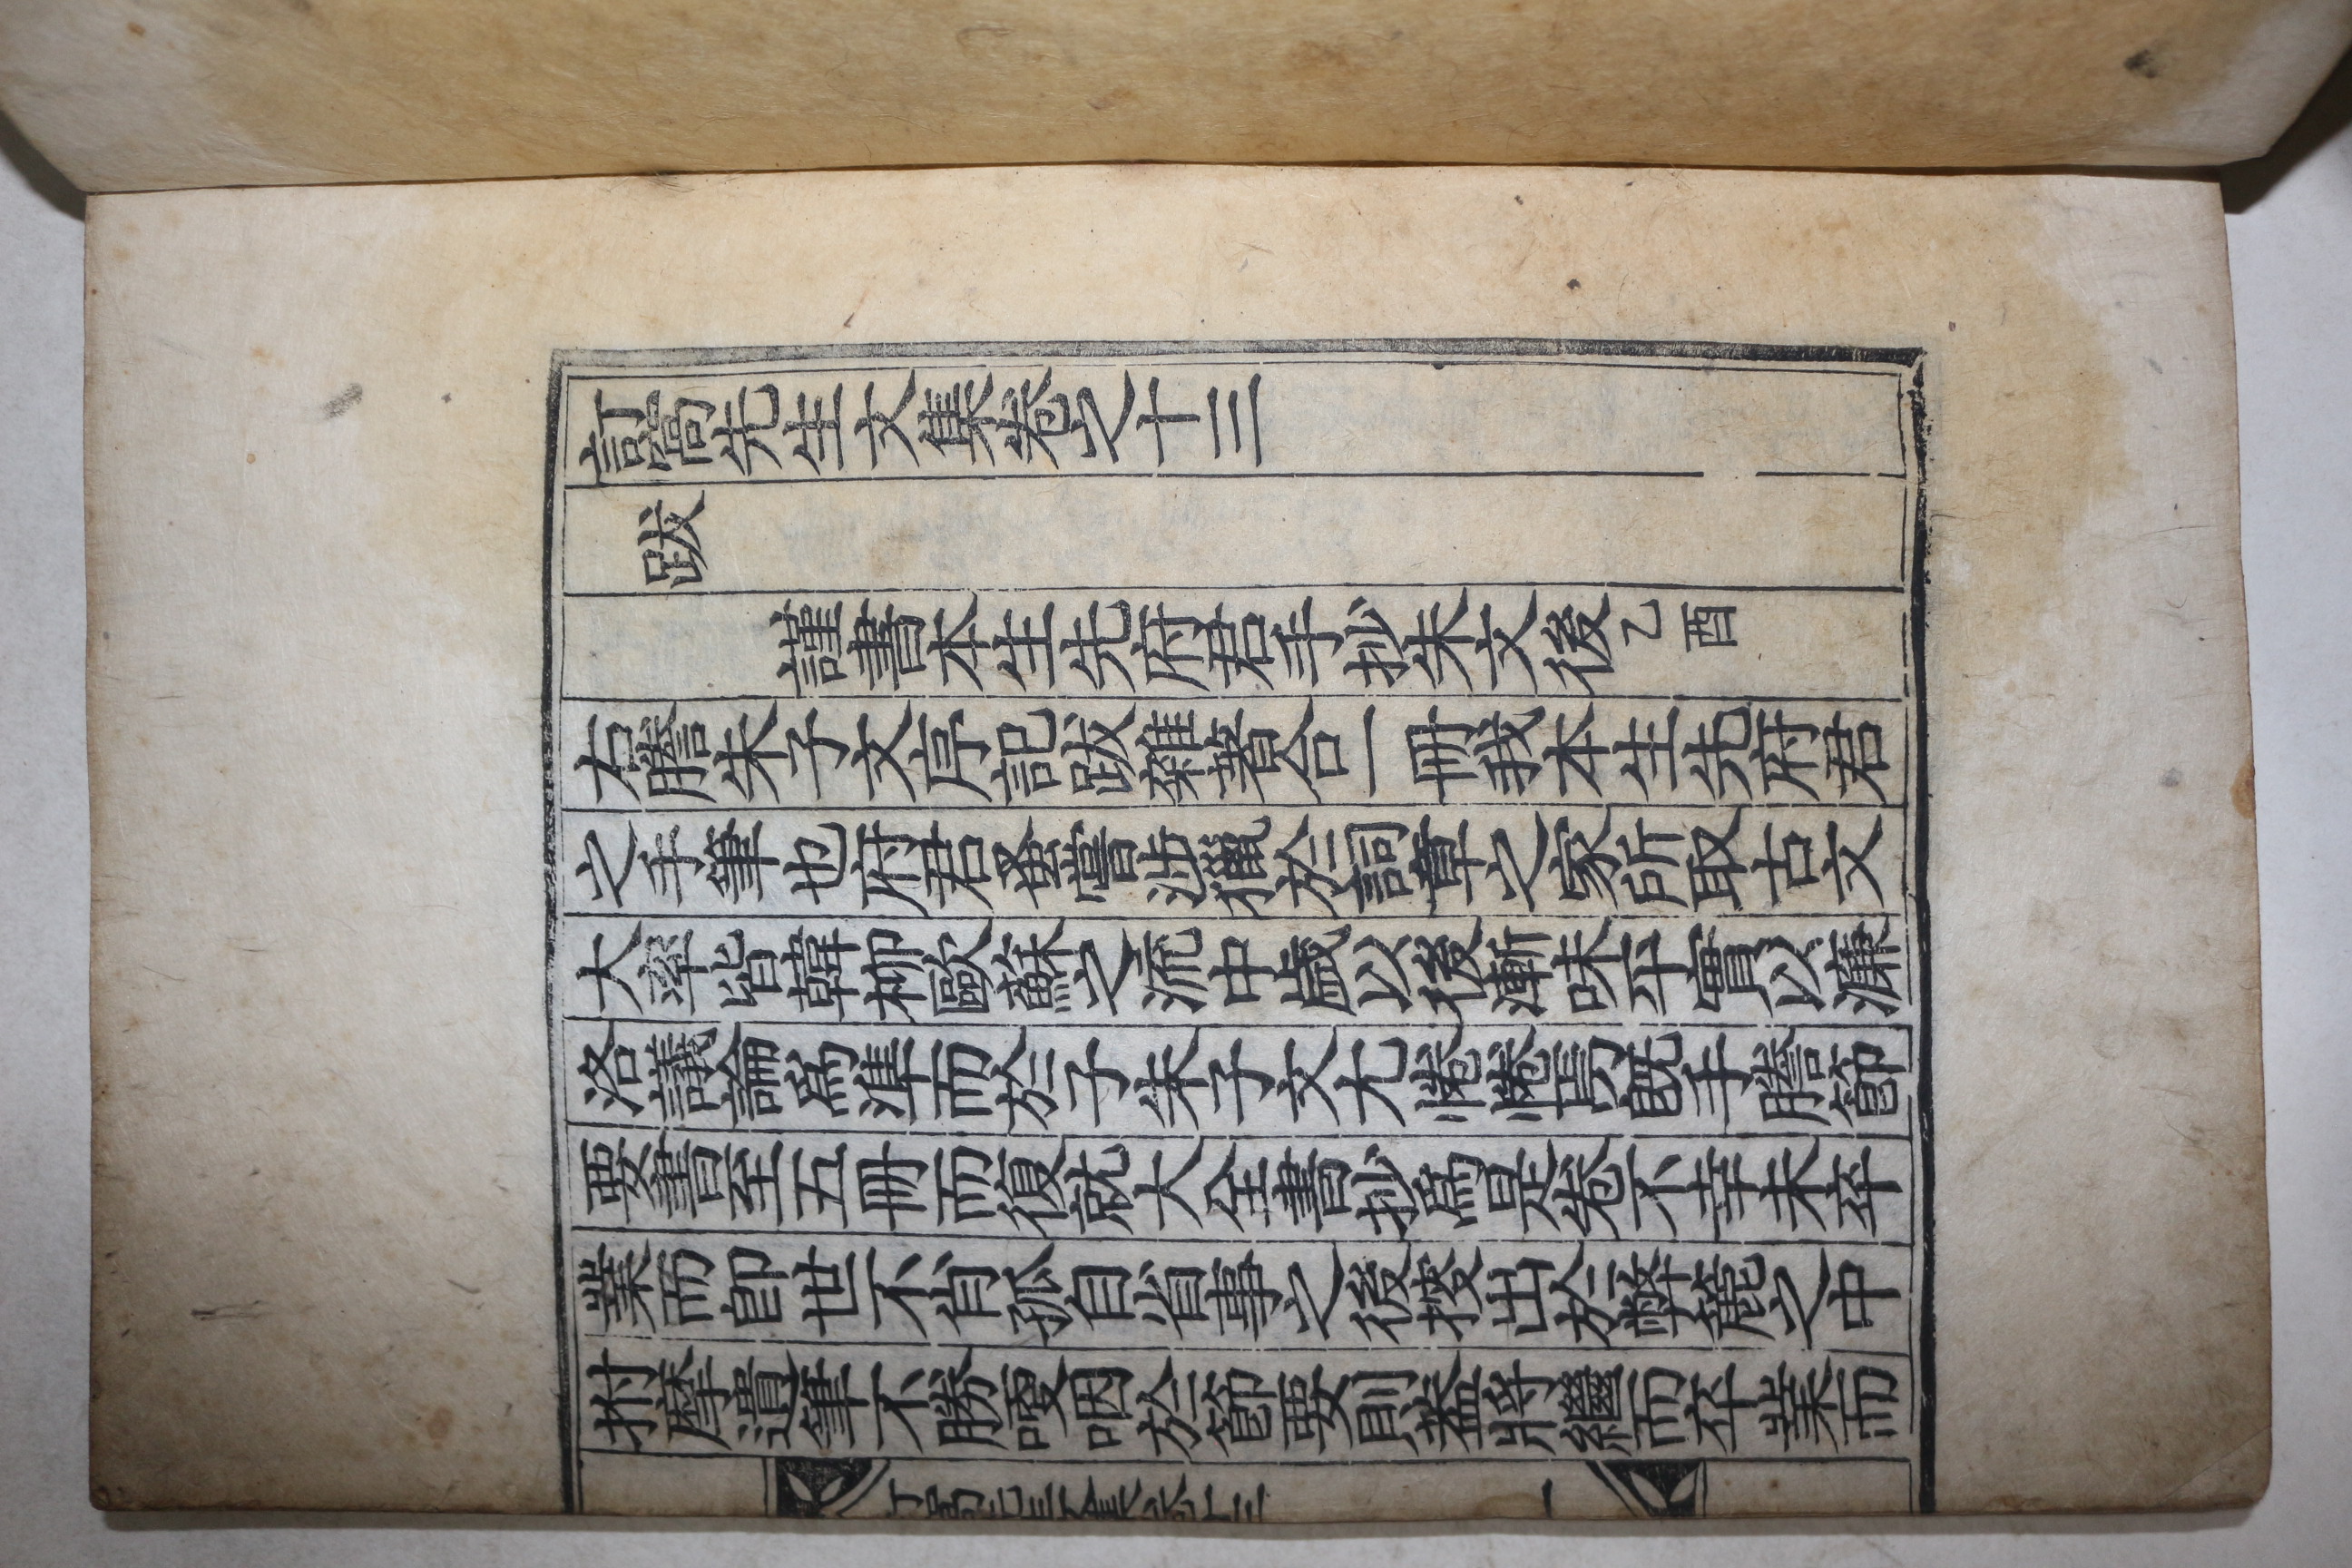 訂窩先生文集卷之十三
跋
謹書本生先府君手抄朱文後乙酉
右謄朱子文序記跋雜著合一冊我本生先府君
之手筆也府君蚤嘗涉獵於詞章之家所取古文
大率皆韓柳歐蘇之流中歲以後漸味乎實以濂
洛議論爲準而於子朱子文尤惓惓焉旣手謄節
要書全五冊而復就大全書抄爲是卷不幸未卒
業而卽世不肖孤自省事之後搜出於弊簏之中
拊摩遺筆不勝哽咽於節要則蓋將繼而卒業而
訂窩先生文集卷十三 一